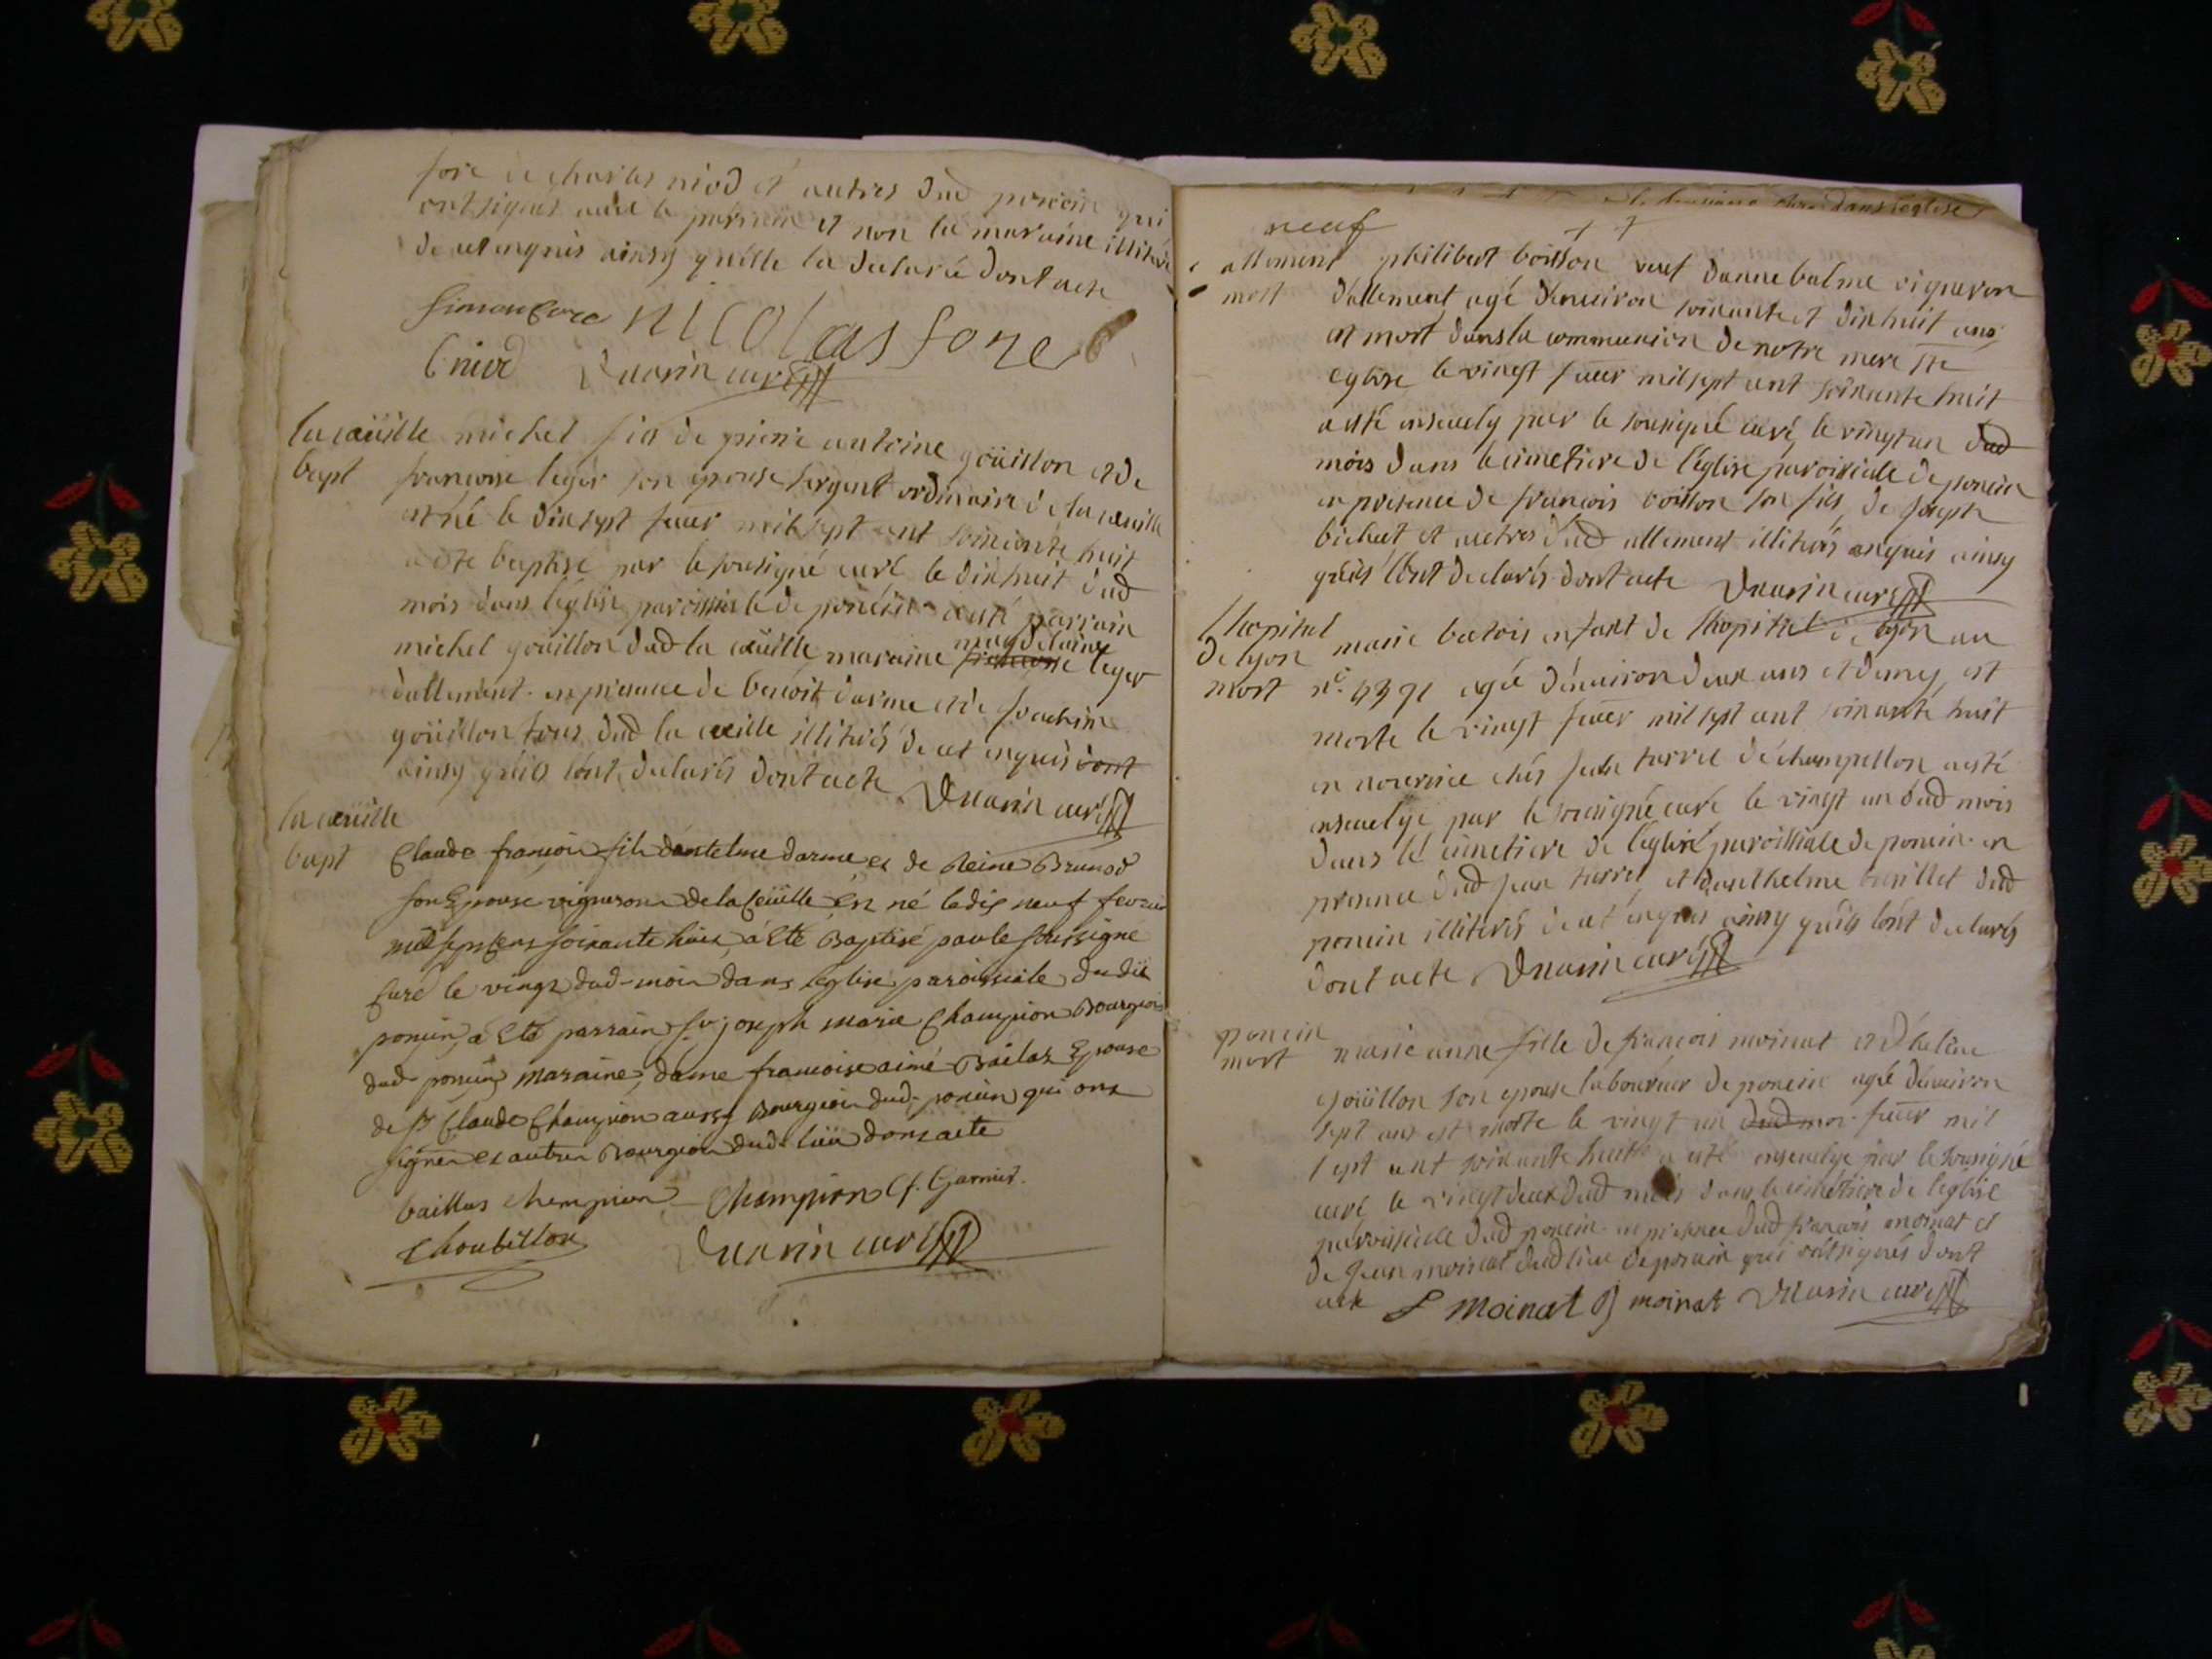 fore de charles niod et autres dud poncin qui
ont signés avec le parrain et non la maraine illiterée
de ce enquis ainsy qu'elle la declaré dont acte
Simon fore nicolas fore
C niod Duarin curé
la cœüille
bapt
michel fils de pierre antoine goüillon et de
francoise leger son epouse sergent ordinaire de la cœuille
est né le dixsept fever mil sept cent soixante huit
a esté baptisé par le sousigné curé le dixhuit dud
mois dans l'église paroissiale de poncin a esté parrain
michel goüillon dud la cœüille maraine magdelaine leger
dallement en presence de benoit darme et de joachim
goüillon tous dud la cœuille illiterés de ce enquis dont
ainsy qu'ils l'ont declarés dont acte Duarin curé
la cœuille
bapt
Claude francois fils dantelme darme et de Reine Brunod
son Epouse vigneron de la Ceüille Est né le dix neuf fevrier
mil sept cens soixante huit, a Eté Baptisé par le soussigne
Curé le vingt dud mois dans l'eglise paroissiale du dit
poncin, a Eté parrain sr joseph marie Champion Bourgeois
dud poncin, maraine, dame francoise aimé Baillas Epouse
de sr Claude Champion aussy Bourgeois dud poncin qui ont
signer et autres Bourgeois dud lieu dont acte
baillas champion Champion C. f. Garnier
Choubillon Duarin curé
dans l'eglise
neuf
allement
mort
philibert boisson veuf danne balme vigneron
d'allement agé d'environ soixante et dixhuit ans
est mort dans la communion de notre mere ste
eglise le vingt fever mil sept cent soixante huit
a esté enseuely par le sousigné curé le vingt un dud
mois dans le cimetiere de l'église paroissiale de poncin
en presence de francois boisson son fils, de joseph
bichet et autres dud allement illiterés enquis ainsy
qu'ils l'ont declarés dont acte Duarin curé
l'hopital
de lyon
mort
marie barlois enfant de l'hopital de lyon au
n° 4391 agée d'environ deux ans et demy, est
morte le vingt fever mil sept cent soixante huit
en nourrice chés jean turrel de champollon a esté
enseuelye par le sousigné curé le vingt un dud mois
dans le cimetiere de l'eglise paroissiale de poncin en
presence dud jean turrel et danthelme dud
poncin illiterés de ce enquis ainsy qu'ils l'ont declarés
dont acte Duarin curé
poncin
mort
marie anne fille de francois moinat et d'heleine
goüillon son epouse laboureur de poncin agée d'environ
sept ans est morte le vingt un dud moi fever mil
sept cent soixante huit a esté enseuelye par le sousigné
curé le vingt deux dud mois dans le cimetiere de l'eglise
paroissiale dud poncin en presence dud francois moinat et
de jean moinat dud lieu de poncin qui ont signés dont
acte f moinat J moinat Duarin curé